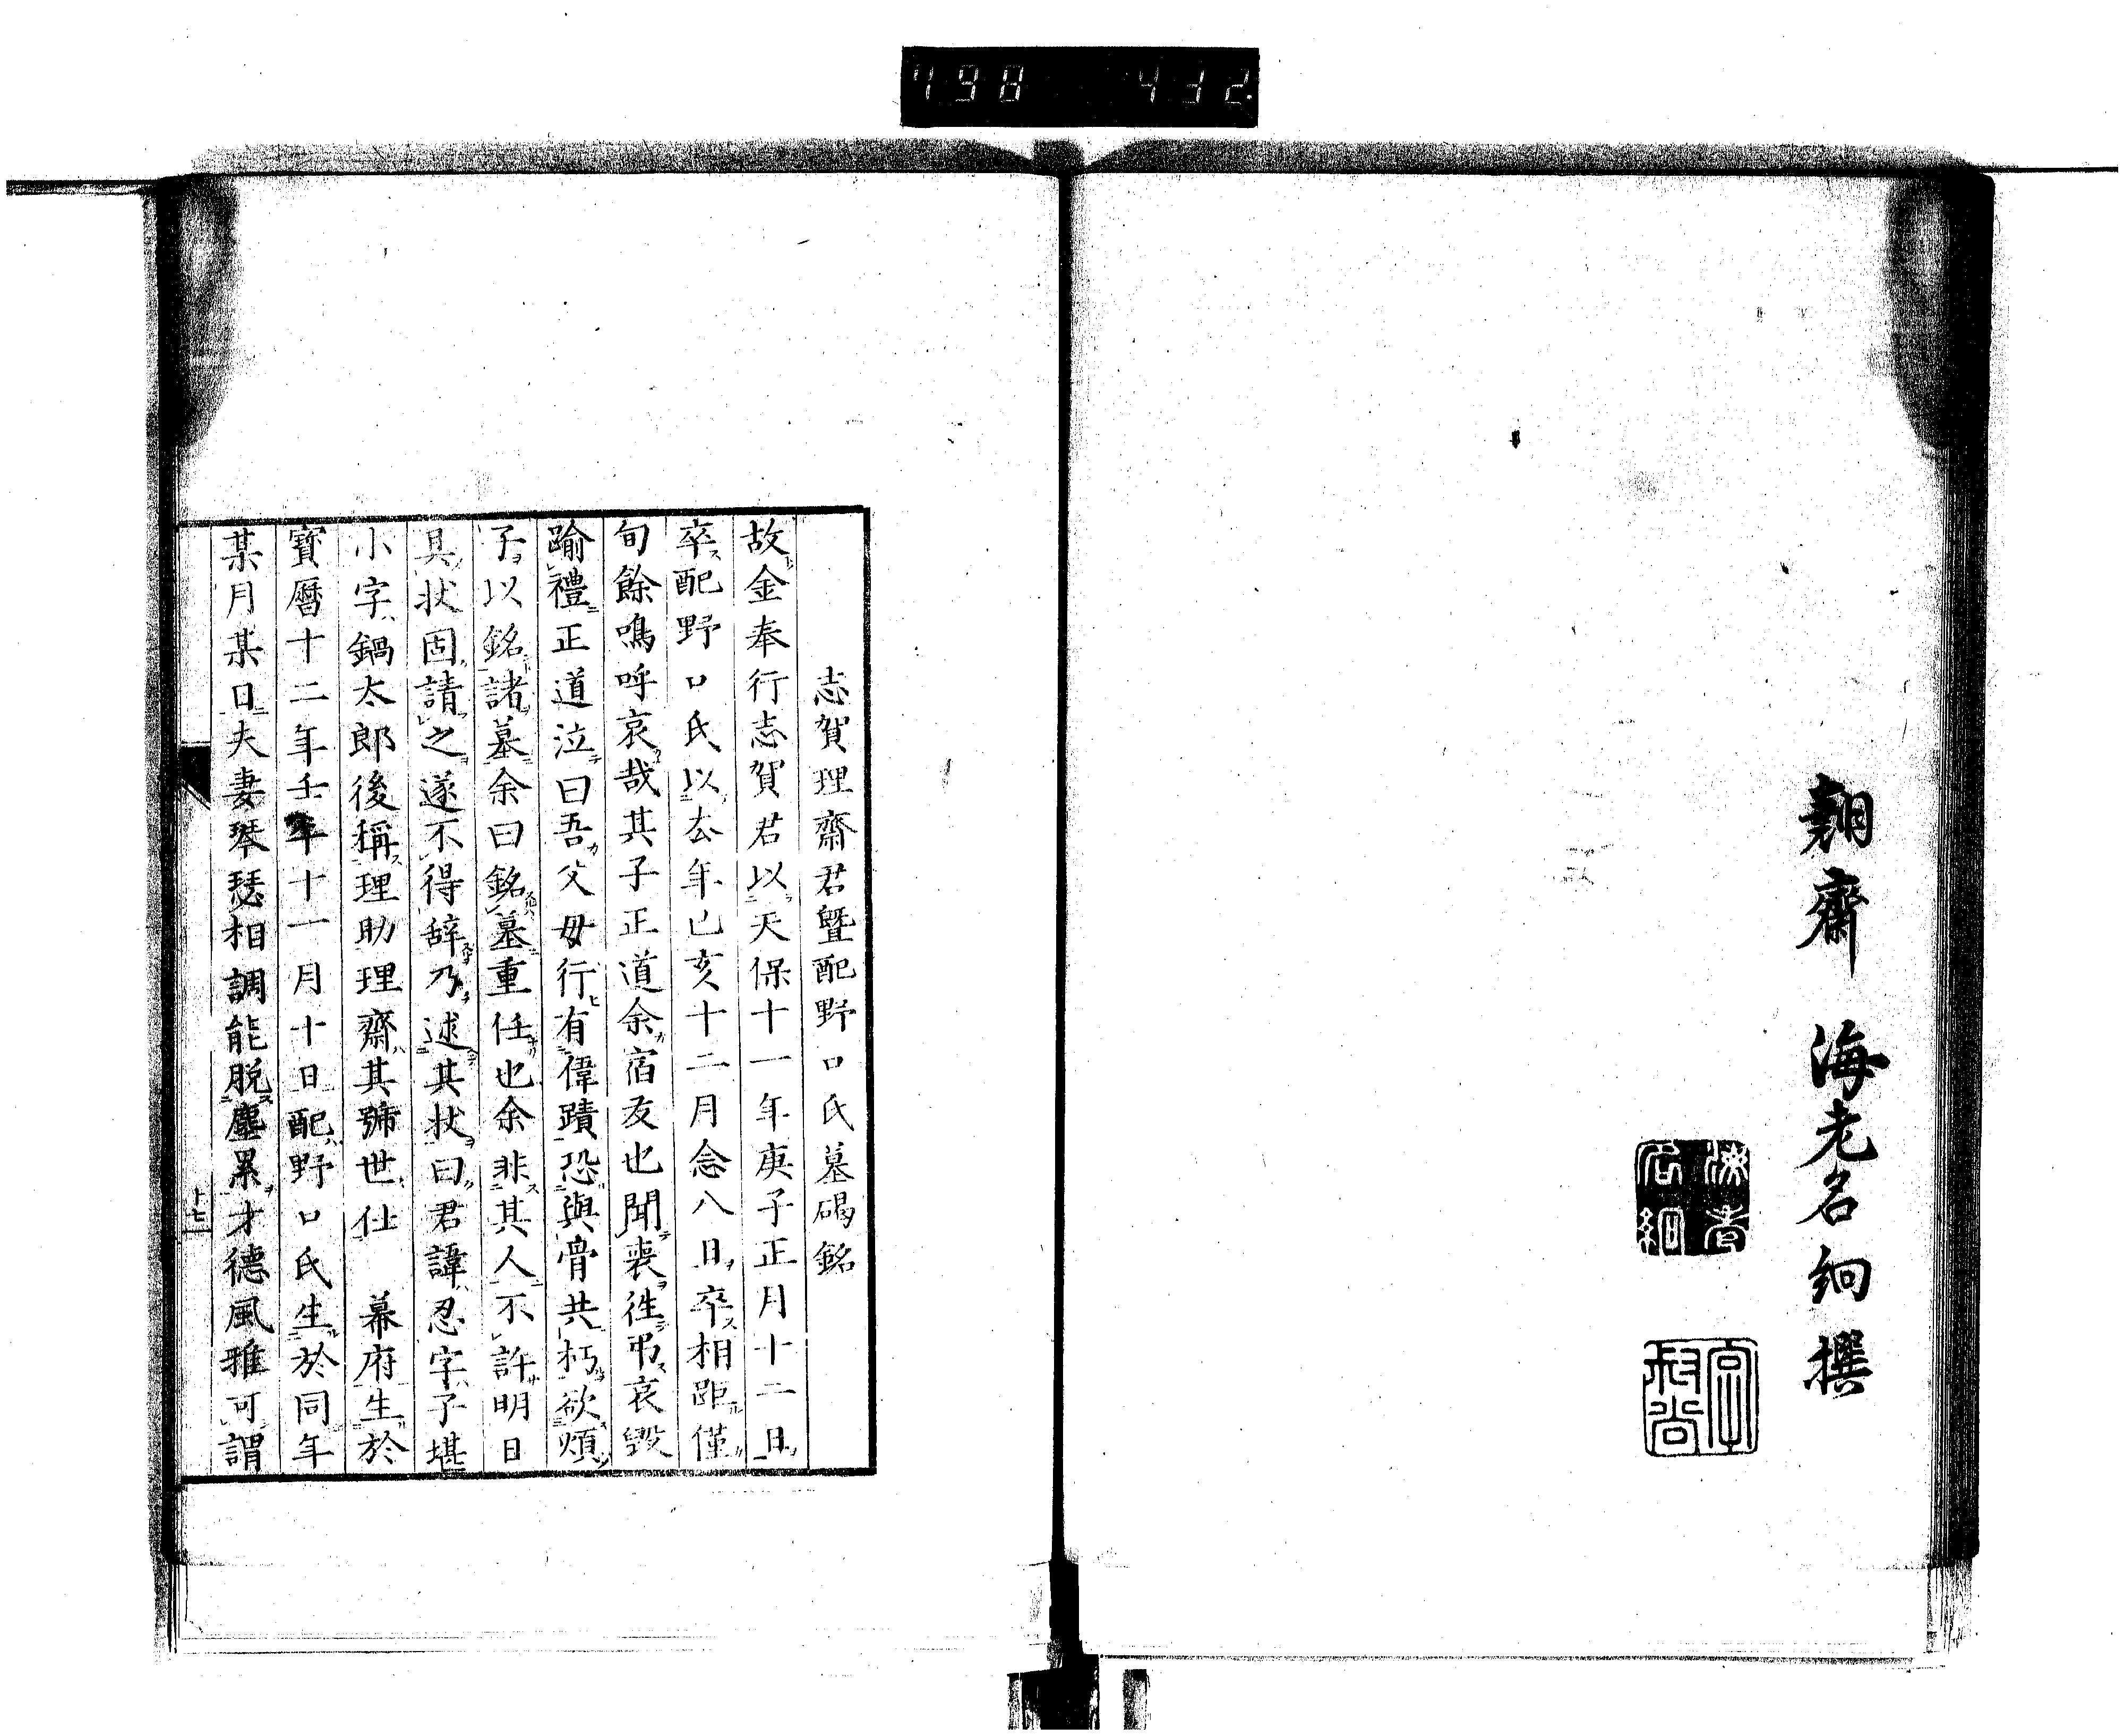 翿齋 海老名絅撰
志賀理齋君曁配野口氏墓碣銘
故金奉行志賀君以天保十一年庚子正月十二日
卒配野口氏以去年己亥十二月念八日卒相距僅
旬餘嗚呼哀哉其子正道余宿友也聞喪徃弔哀毀
踰禮正道泣曰吾父母行有偉蹟恐與骨共朽欲煩
子以銘諸墓余曰銘墓重任也余非其人不許明日
具状固請之遂不得辞乃述其状曰君諱忍字子堪
小字鍋太郎後稱理助理齋其號世仕 幕府生於
寳曆十二年壬午十一月十日配野口氏生於同年
某月某日夫妻琴瑟相調能脱塵累才德風雅可謂
十七